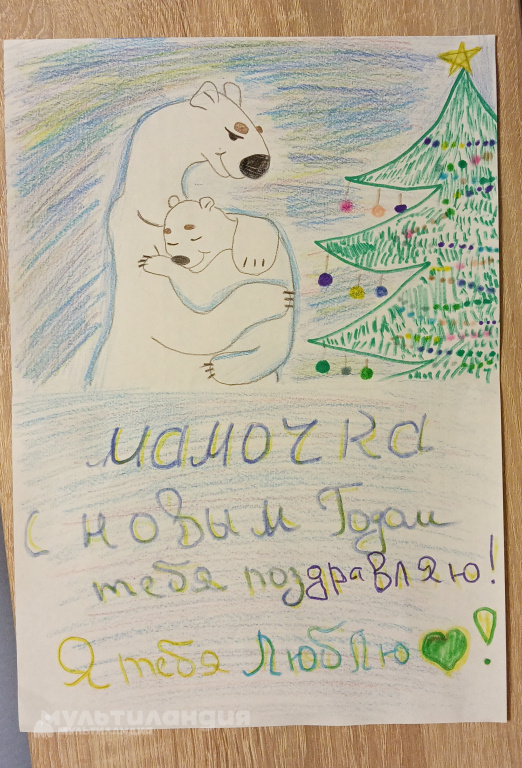 мамочка
с новым Годом
тебя поздравляю!
Я тебя Люблю!
мультиландия